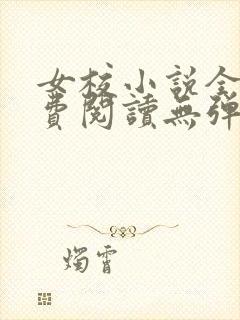 女校小說全
費閱讀無彈
燭霄